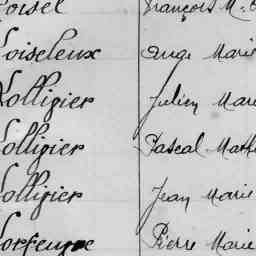 Loisel François M.
Loiseleux Ange Marie
Lolligier Julien Mar
Lolligier Pascal Math
Lolligier Jean Marie
Lorfeuvre Pierre Marie